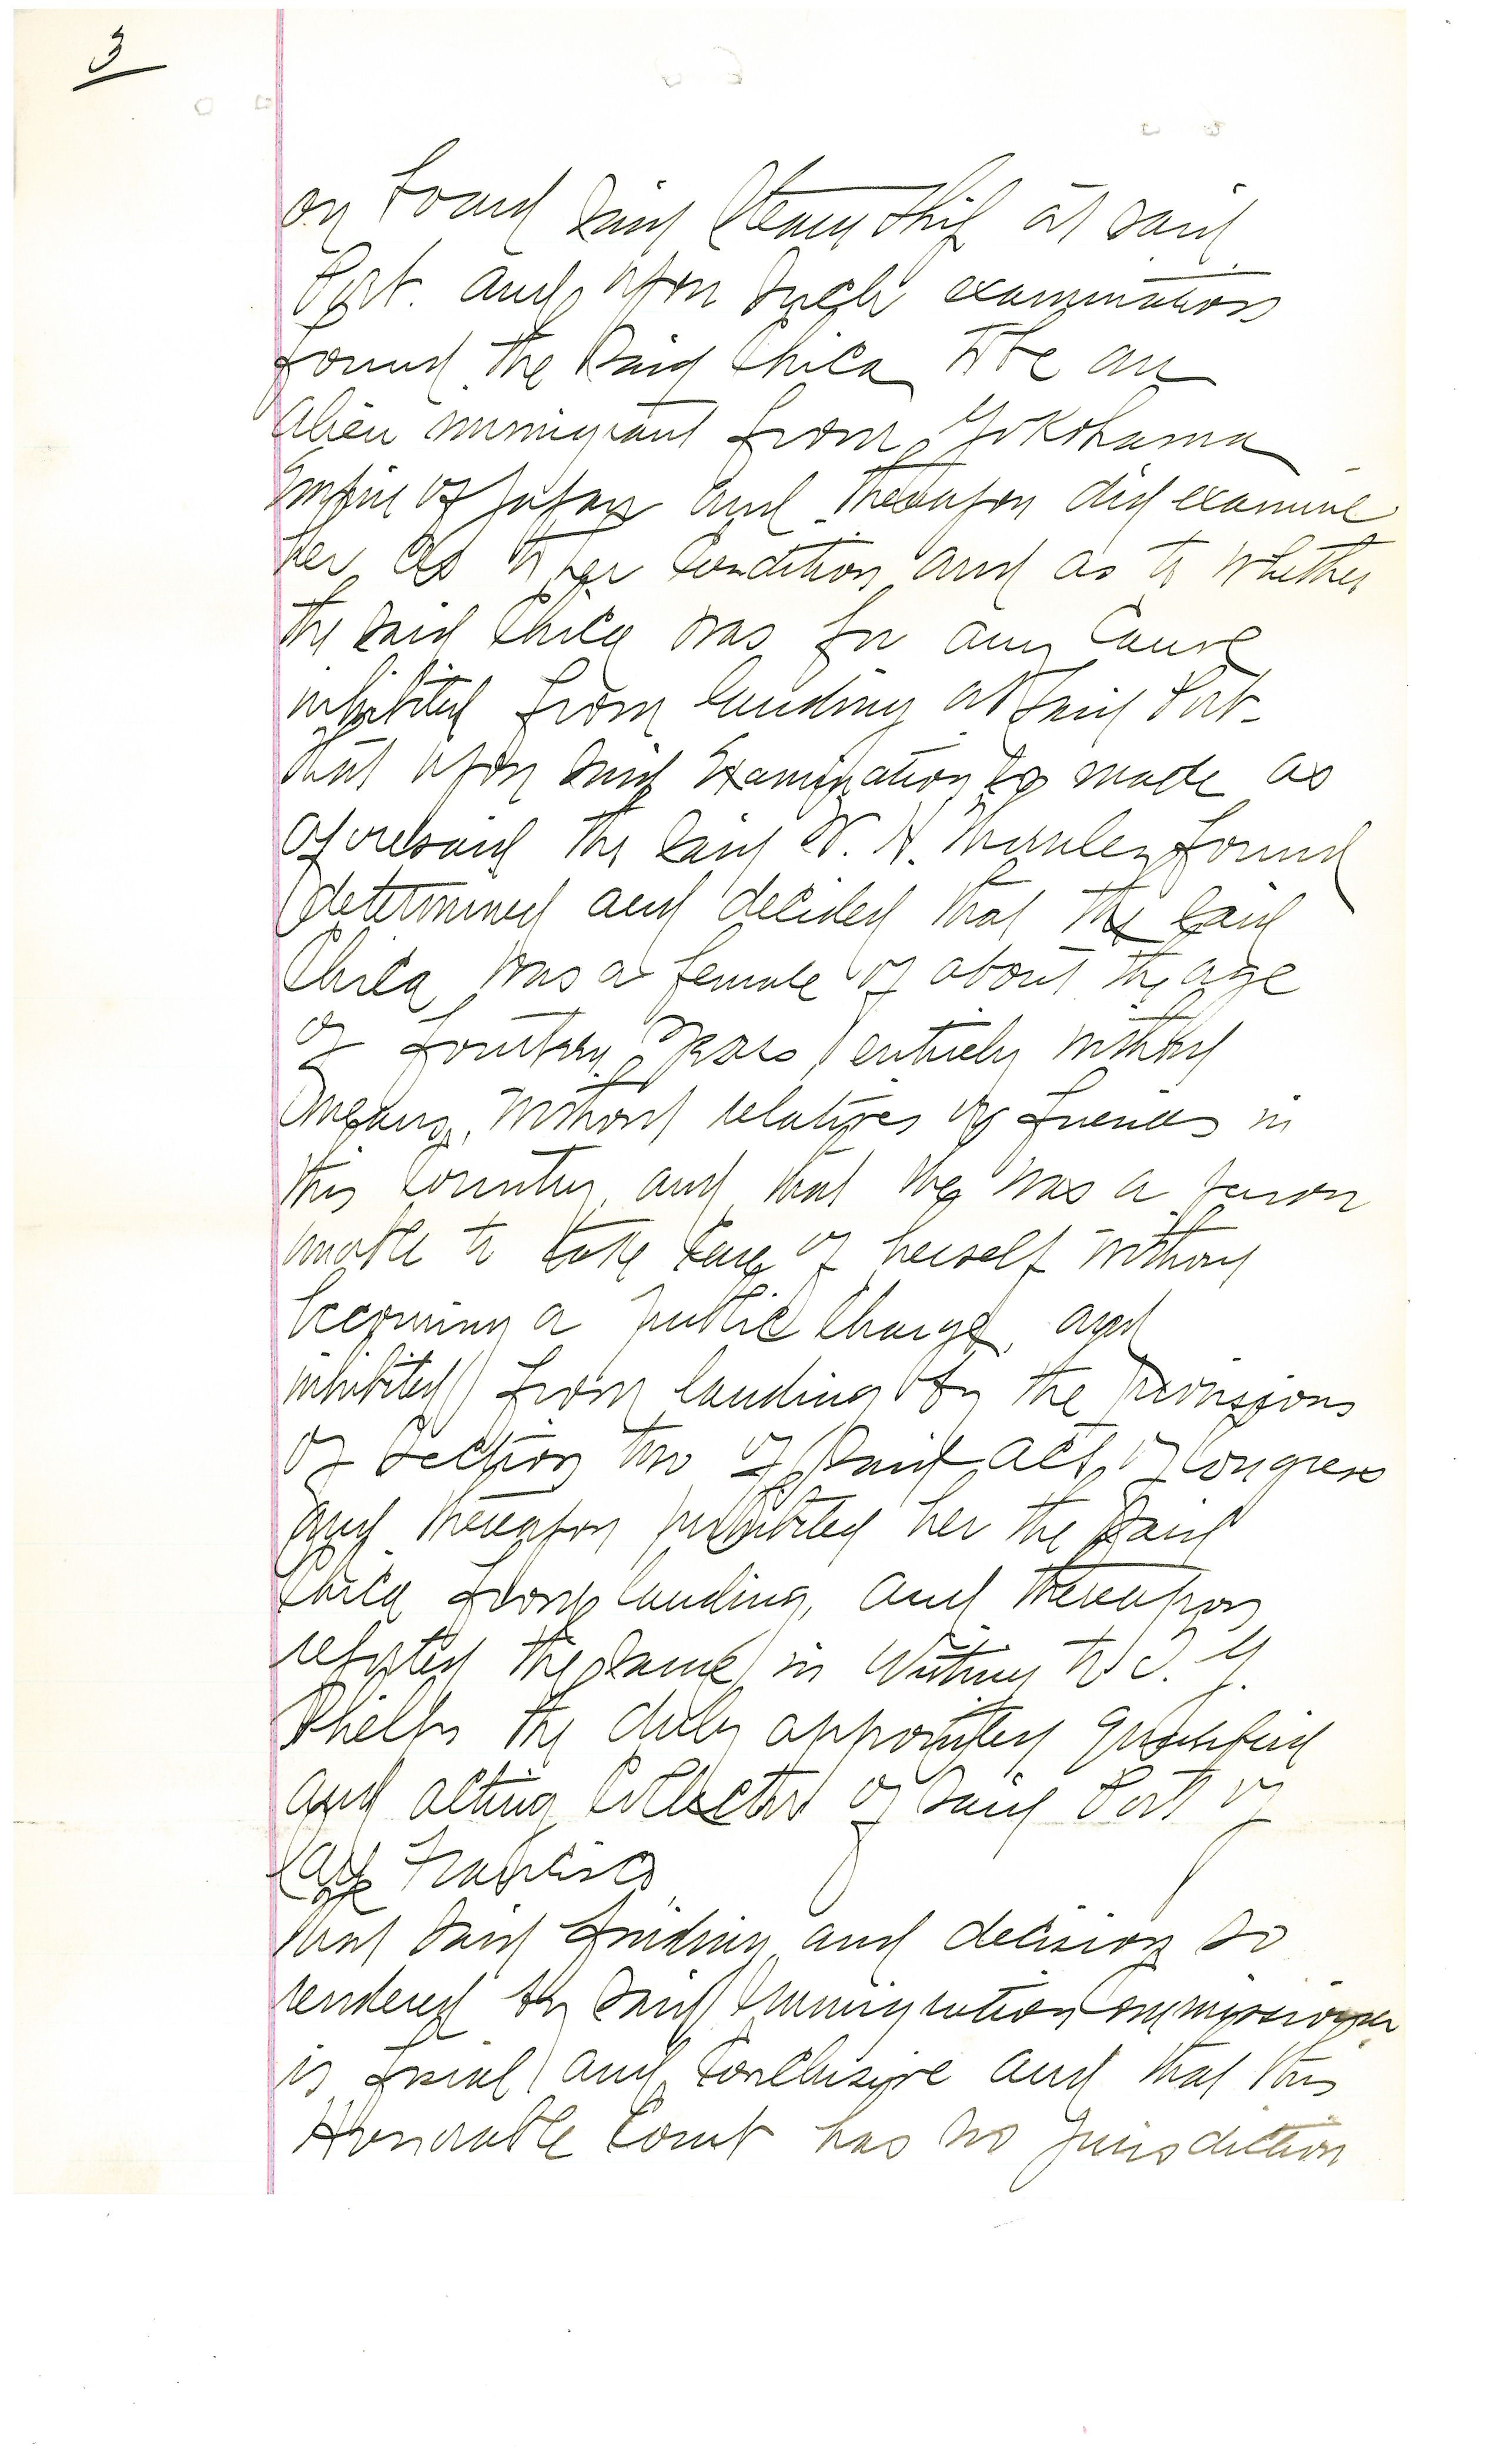 3
on board said Steam Ship at said
Port. and upon such examination
found the said Chica to be an
alien immigrant from Yokohama
Empire of Japan and thereupon did examine
her as to her condition and as to whether
the said Chica was for any cause
inhibited from landing at said Port.
that upon said Examination so made as
aforesaid the said W. H. Thornley found
determined and decided that the said
Chica was a female of about the age
of fourteen years, entirely without
means, without relatives or friends in
this Country, and that she was a person
unable to take care of herself without
becoming a public charge, and
inhibited from landing by the provisions
of Section two of said act of Congress
and thereupon prohibited her the said
Chica from landing, and thereupon
reported the same in Writing to T. G.
Phelps the duly appointed qualified
and acting Collector of said Port of
San Francisco
that said finding and decision so
rendered by said Immigration Commissioner
is final and conclusive and that this
Honorable Court has no jurisdiction